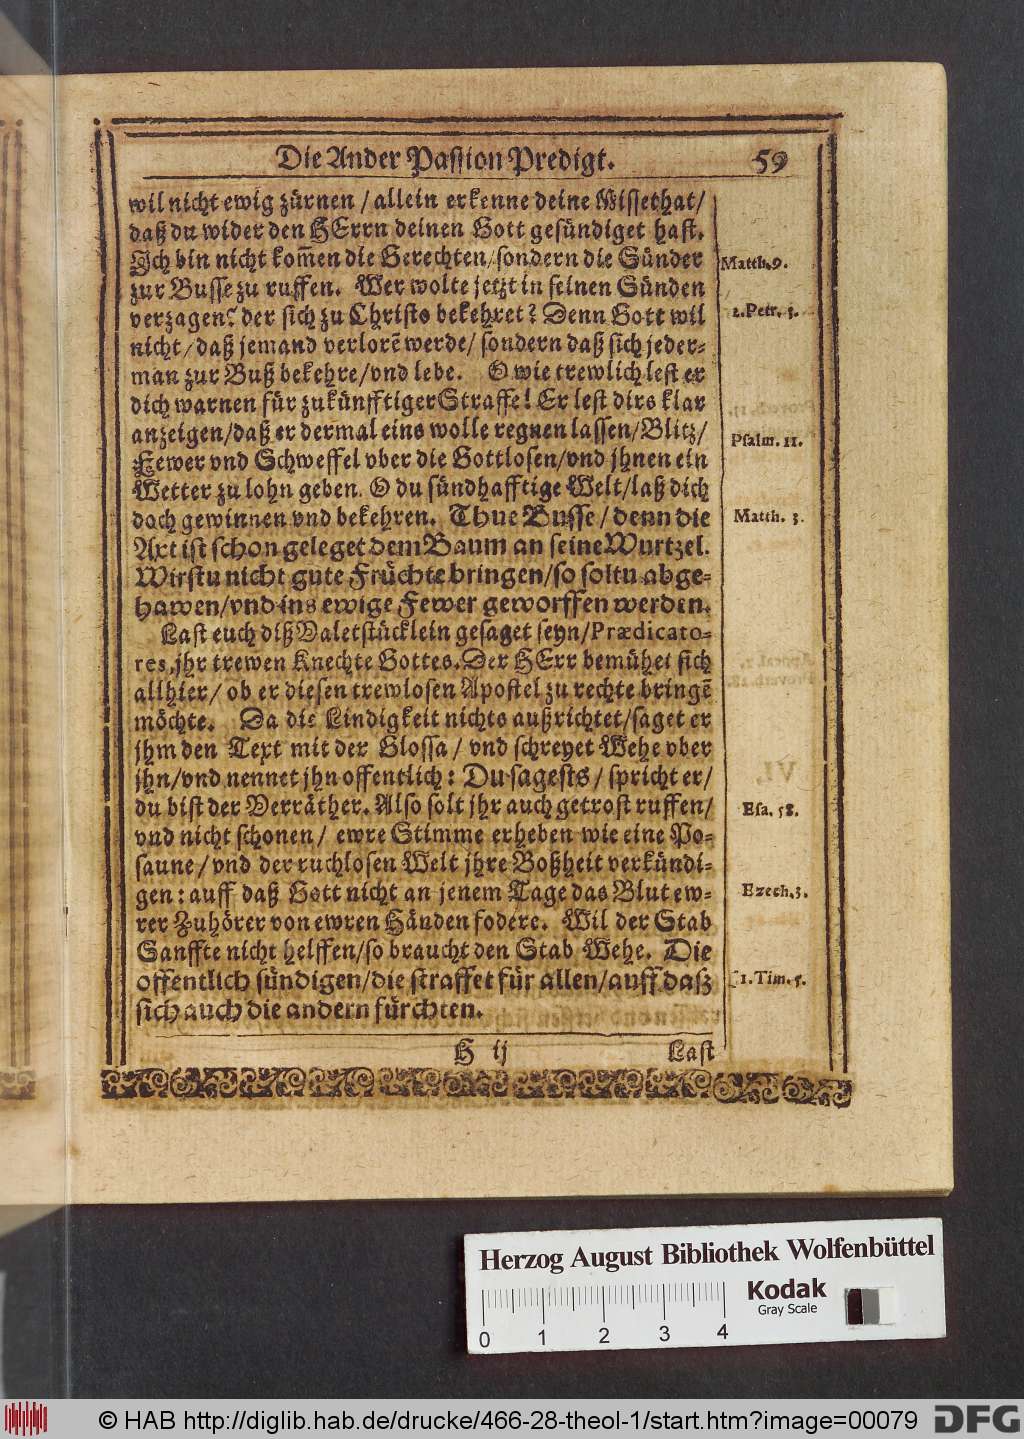 Die Ander Passion Predigt. 59
wil nicht ewig zürnen / allein erkenne deine Missethat /
daß du wider den HErrn deinen Gott gesündiget hast.
Ich bin nicht kom̃en die Gerechten / sondern die Sünder
Matth. 9.
zur Busse zu ruffen. Wer wolte jetzt in seinen Sünden
verzagen? der sich zu Christo bekehret? Denn Gott wil
2. Petr. 3.
nicht / daß jemand verlorẽ werde / sondern daß sich jeder-
man zur Buß bekehre / vnd lebe. O wie trewlich lest er
dich warnen für zukünfftiger Straffe! Er lest dirs klar
anzeigen / daß er dermal eins wolle regnen lassen / Blitz /
Psalm. 11.
Fewer vnd Schweffel vber die Gottlosen / vnd jhnen ein
Wetter zu lohn geben. O du sündhafftige Welt / laß dich
doch gewinnen vnd bekehren. Thue Busse / denn die
Matth. 3.
Axt ist schon geleget dem Baum an seine Wurtzel.
Wirstu nicht gute Früchte bringen / so soltu abge-
hawen / vnd ins ewige Fewer geworffen werden.
Last euch diß Valetstücklein gesaget seyn / Prædicato-
res, jhr trewen Knechte Gottes. Der HErr bemühet sich
allhier / ob er diesen trewlosen Apostel zu rechte bringẽ
möchte. Da die Lindigkeit nichts außrichtet / saget er
jhm den Text mit der Glossa / vnd schreyet Wehe vber
jhn / vnd nennet jhn offentlich: Du sagests / spricht er /
du bist der Verräther. Also solt jhr auch getrost ruffen /
Esa. 58.
vnd nicht schonen / ewre Stimme erheben wie eine Po-
saune / vnd der ruchlosen Welt jhre Boßheit verkündi-
gen: auff daß Gott nicht an jenem Tage das Blut ew-
Ezech. 3.
rer Zuhörer von ewren Händen fodere. Wil der Stab
Sanffte nicht helffen / so braucht den Stab Wehe. Die
offentlich sündigen / die straffet für allen / auff daß
1. Tim. 5.
sich auch die andern fürchten.
H ij Last
Herzog August Bibliothek Wolfenbüttel
Kodak
Gray Scale
0 1 2 3 4
© HAB http://diglib.hab.de/drucke/466-28-theol-1/start.htm?image=00079
DFG